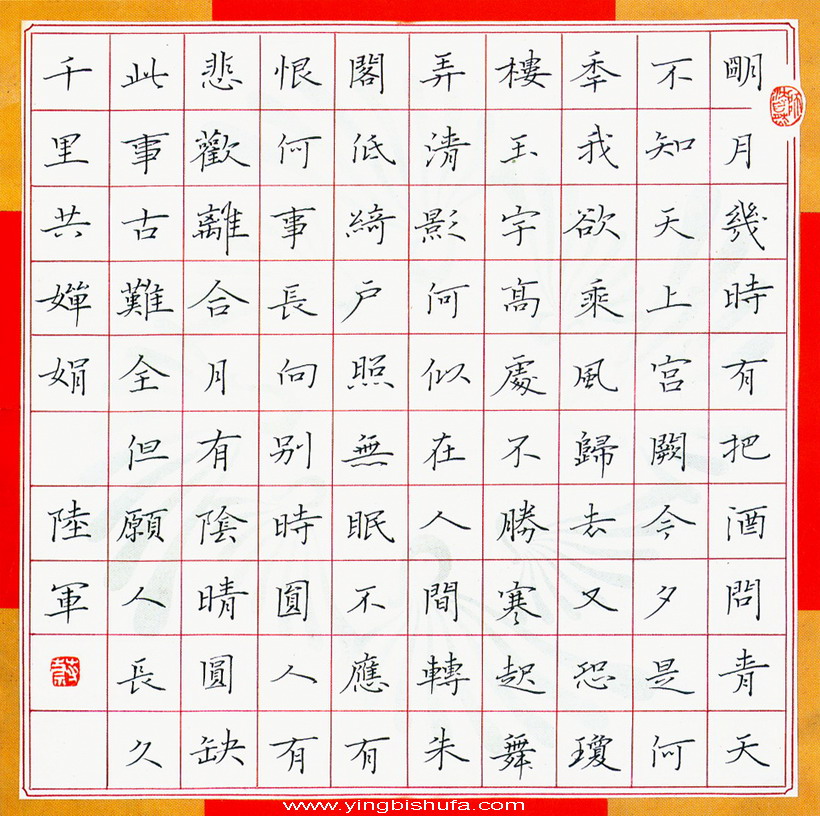 明月幾時有把酒問青天
不知天上宮闕今夕是何
秊我欲乘風歸去又恐瓊
樓玉宇高處不勝寒起舞
弄清影何似在人間轉朱
閣低綺戶照無眠不應有
恨何事長向别時圓人有
悲歡離合月有陰晴圓缺
此事古難全但願人長久
千里共嬋娟 陸軍
www.yingbishufa.com